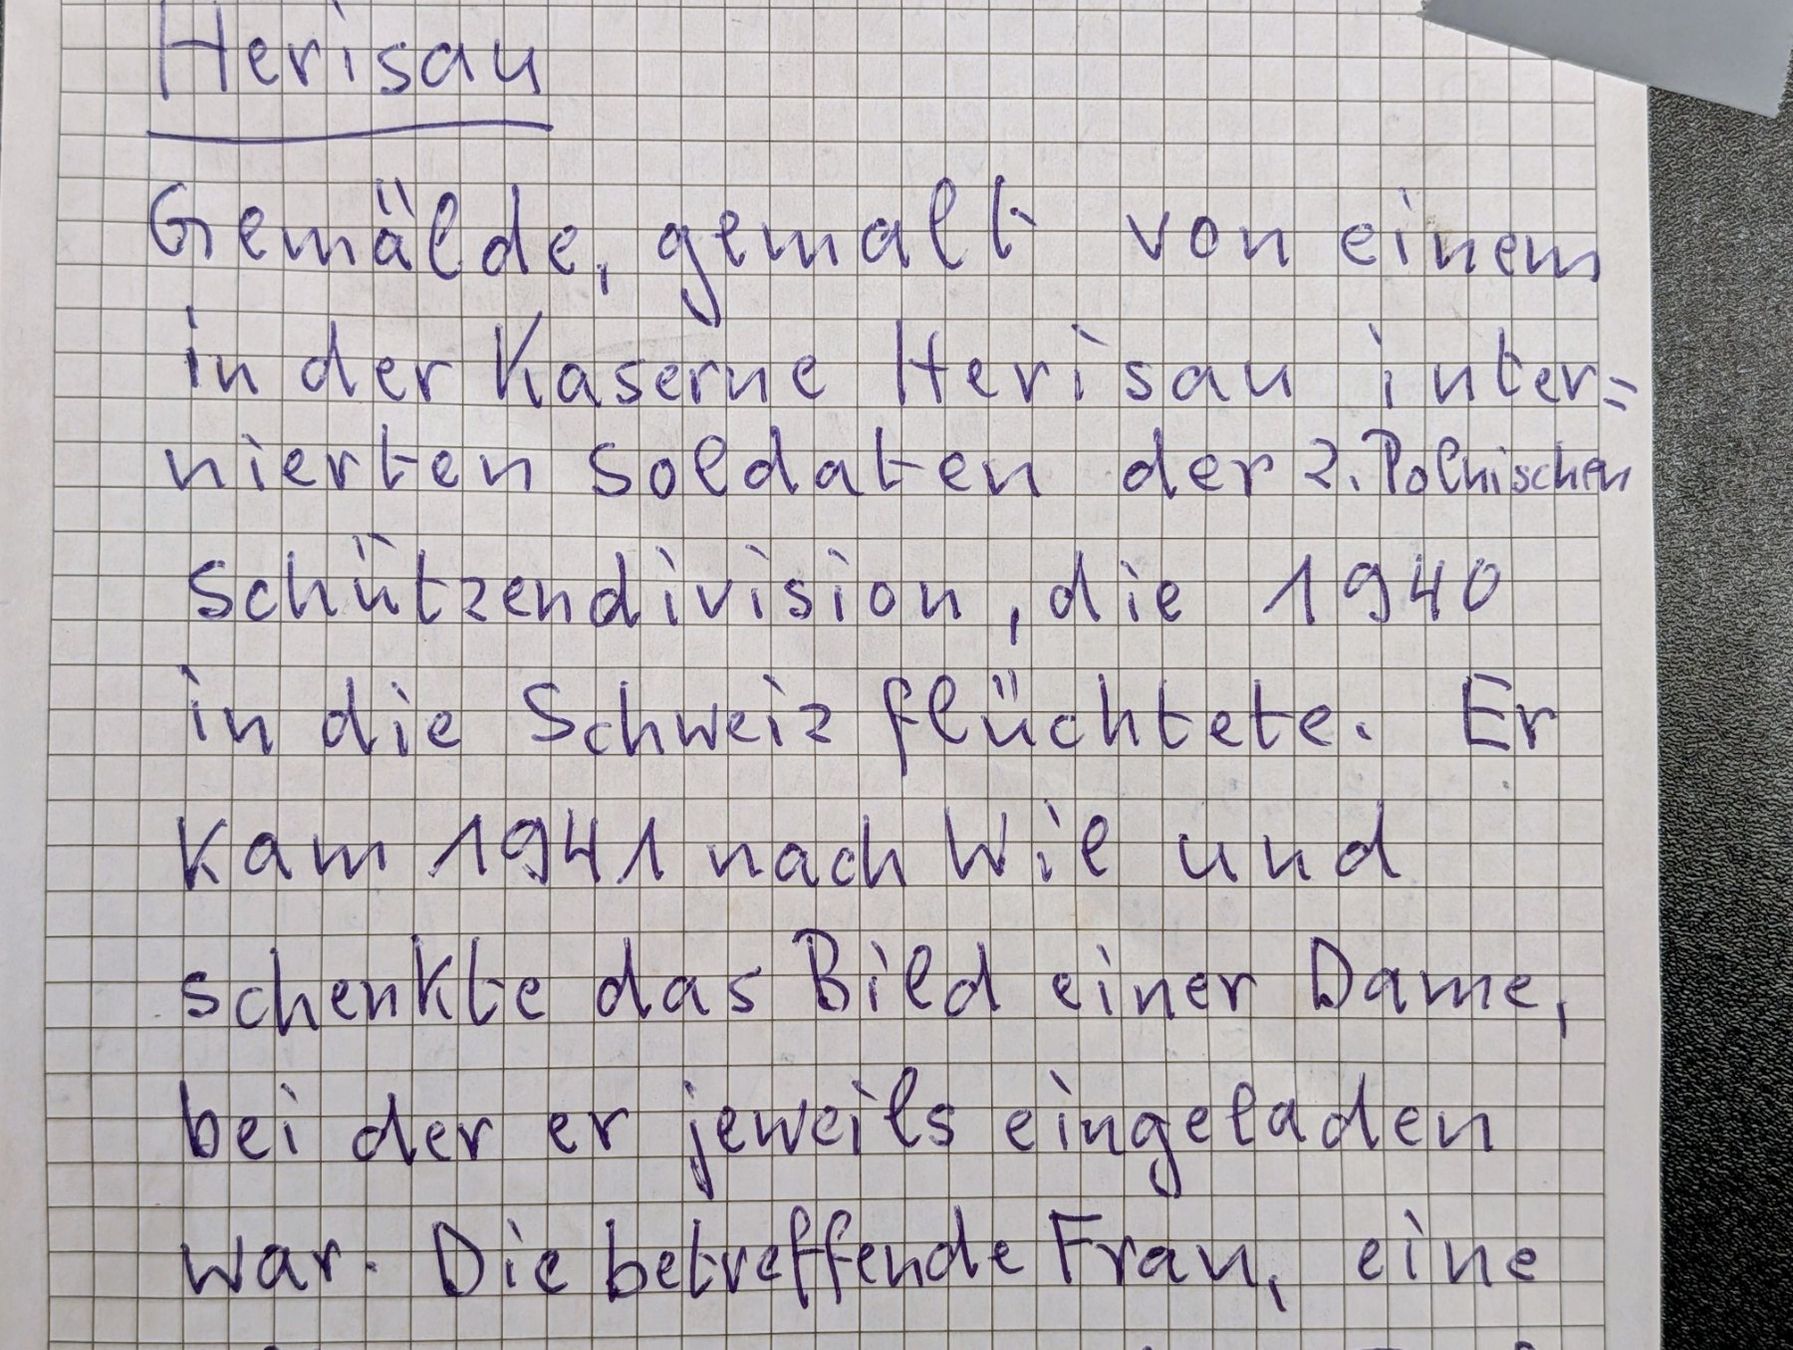 Herisau
Gemälde, gemalt von einem
in der Kaserne Herisau inter=
nierten Soldaten der 2. Polnischen
Schützendivision, die 1940
in die Schweiz flüchtete. Er
kam 1941 nach Wil und
schenkte das Bild einer Dame,
bei der er jeweils eingeladen
war. Die betreffende Frau, eine